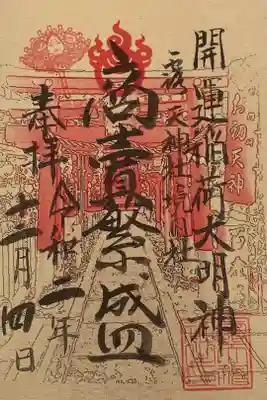 開運稲荷大明神
露天神社境内社
商賣繁盛
奉拝
令和二年
月四日
お初天神